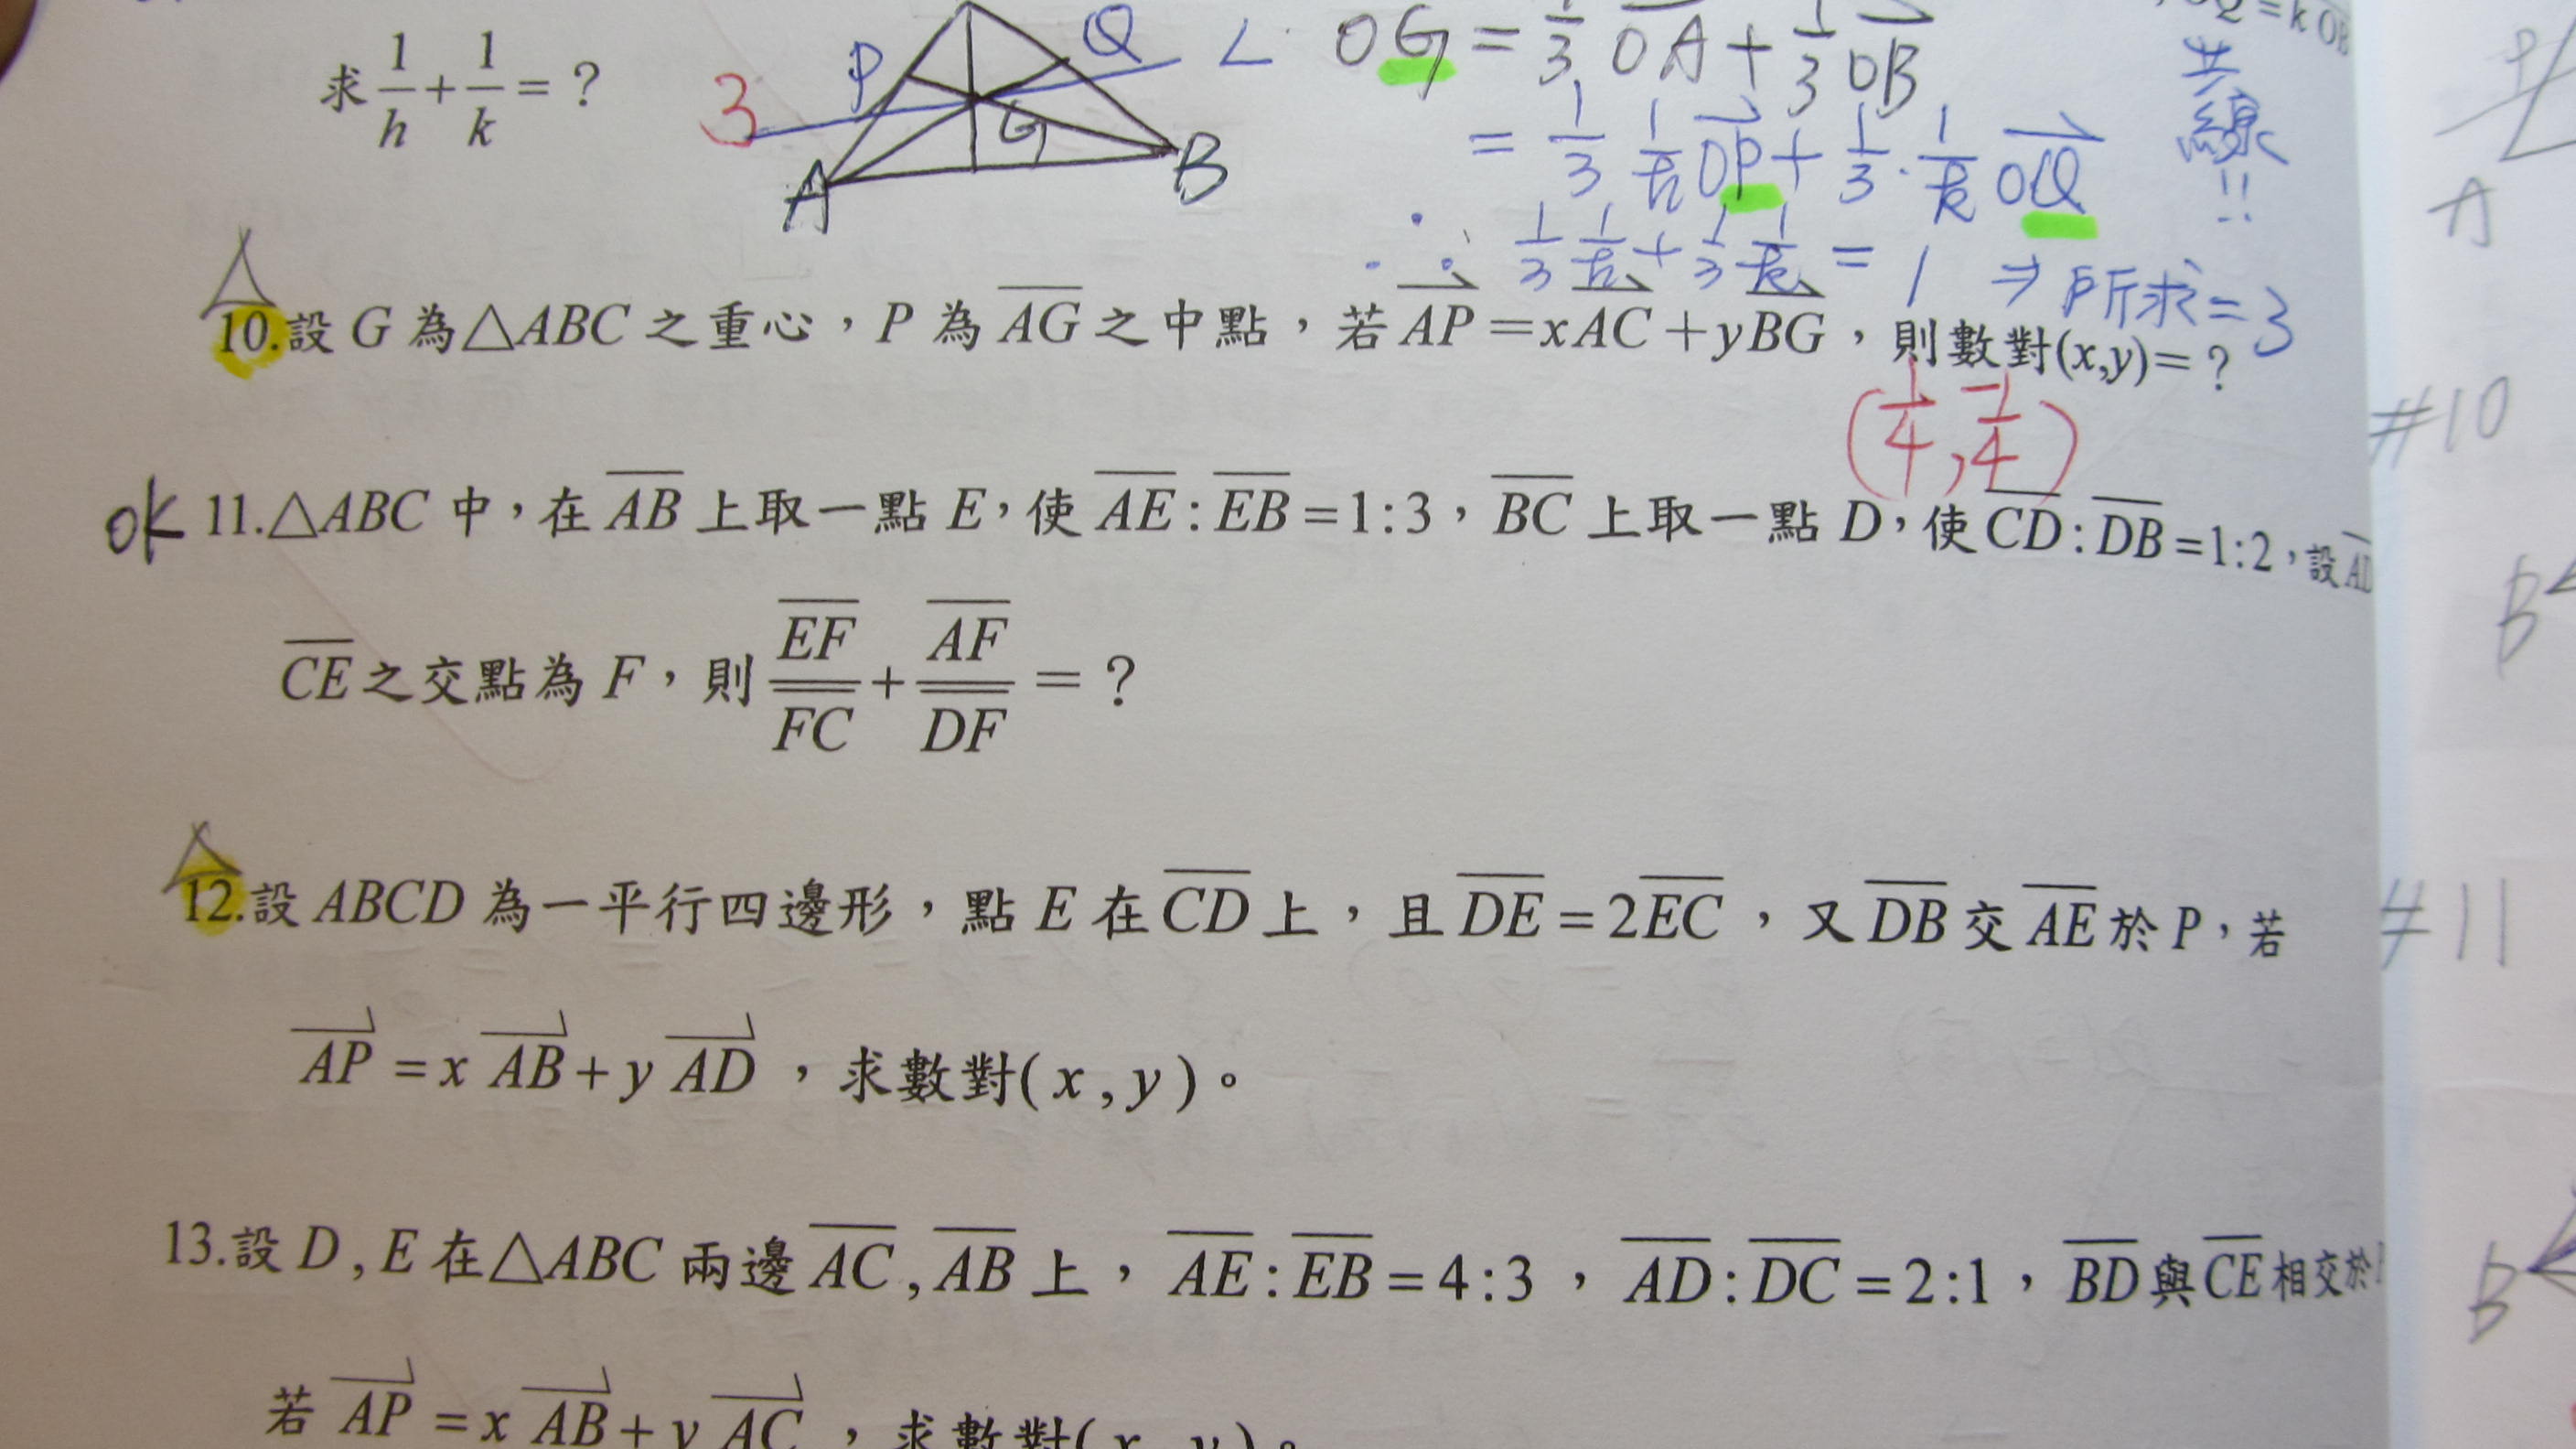 Q = k OB
求 1/h + 1/k = ?
3
P Q L
A G B
OG = 1/3 OA + 1/3 OB
= 1/3 1/h OP + 1/3 · 1/k OQ
共線!!
∴ 1/3 1/h + 1/3 1/k = 1 ⇒ 所求 = 3
10.設 G 為△ABC 之重心，P 為 AG 之中點，若 AP = xAC + yBG，則數對(x,y)= ?
(1/4, -1/4)
#10
ok 11.△ABC 中，在 AB 上取一點 E，使 AE : EB = 1 : 3，BC 上取一點 D，使 CD : DB = 1 : 2，設
CE 之交點為 F，則 EF/FC + AF/DF = ?
12.設 ABCD 為一平行四邊形，點 E 在 CD 上，且 DE = 2EC，又 DB 交 AE 於 P，若
#11
AP = x AB + y AD，求數對(x , y)。
13.設 D , E 在△ABC 兩邊 AC , AB 上，AE : EB = 4 : 3，AD : DC = 2 : 1，BD 與 CE 相交於
若 AP = x AB + y AC，求數對(x , y)。
P
A
B
B